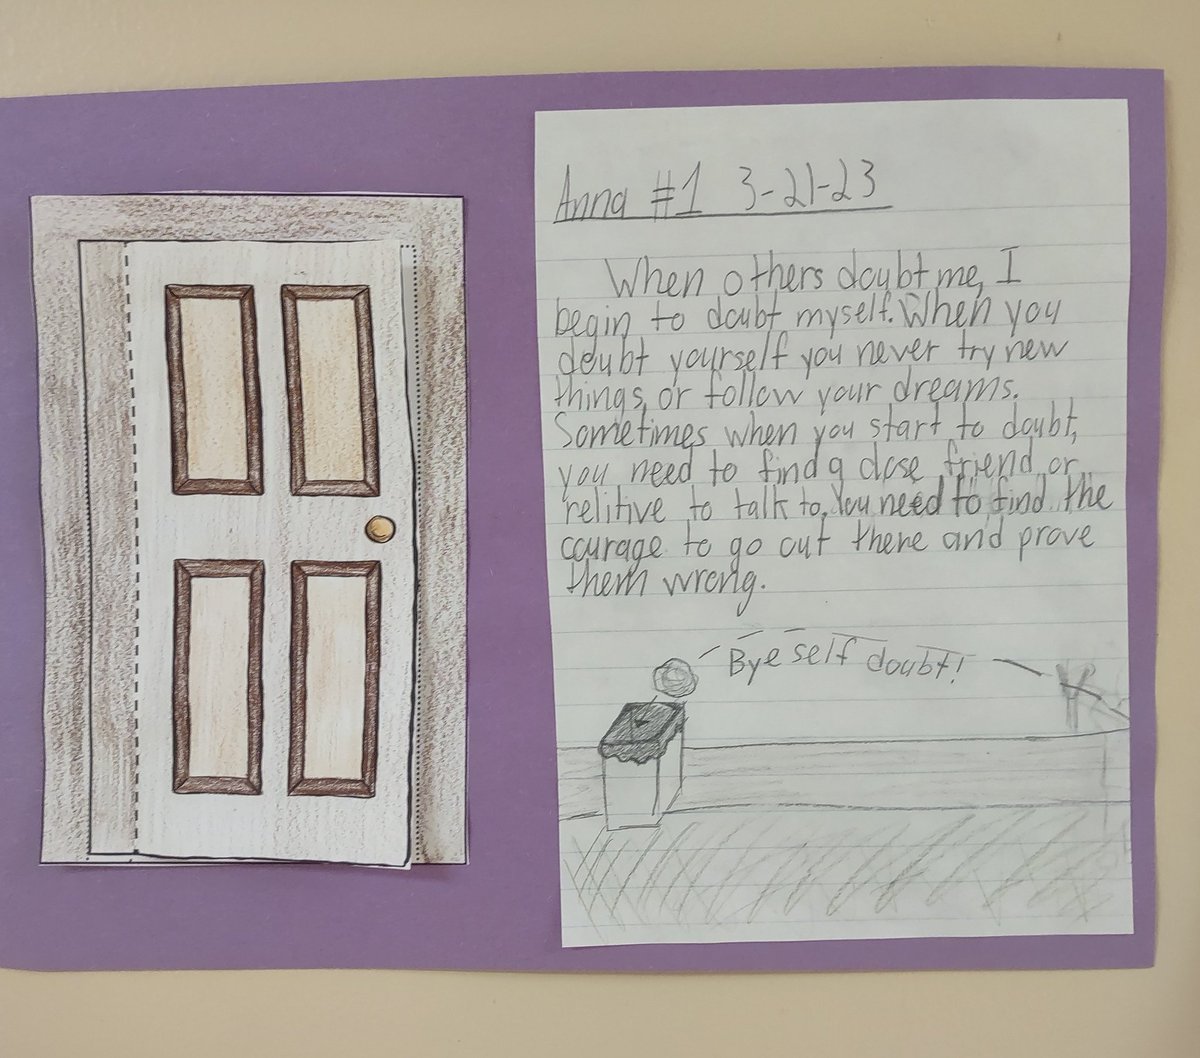 Anna #1 3-21-23
When others doubt me, I
begin to doubt myself. When you
doubt yourself you never try new
things, or follow your dreams.
Sometimes when you start to doubt,
you need to find a close friend or
relitive to talk to. You need to find the
courage to go out there and prove
them wrong.
Bye self doubt!